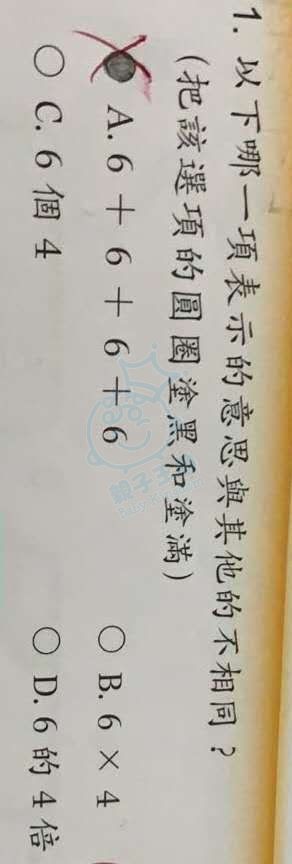 1. 以下哪一項表示的意思與其他的不相同？
(把該選項的圓圈塗黑和塗滿)
A. 6 + 6 + 6 + 6
B. 6 × 4
C. 6 個 4
D. 6 的 4 倍
親子王國